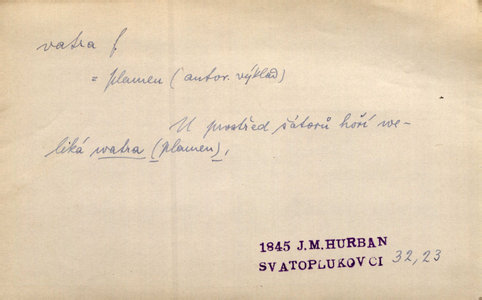 vatra f
= plamen (autor. výklad)
U prostřed šátorů hoří we-
liká watra (plamen),
1845 J.M.HURBAN
SVATOPLUKOVCI 32,23